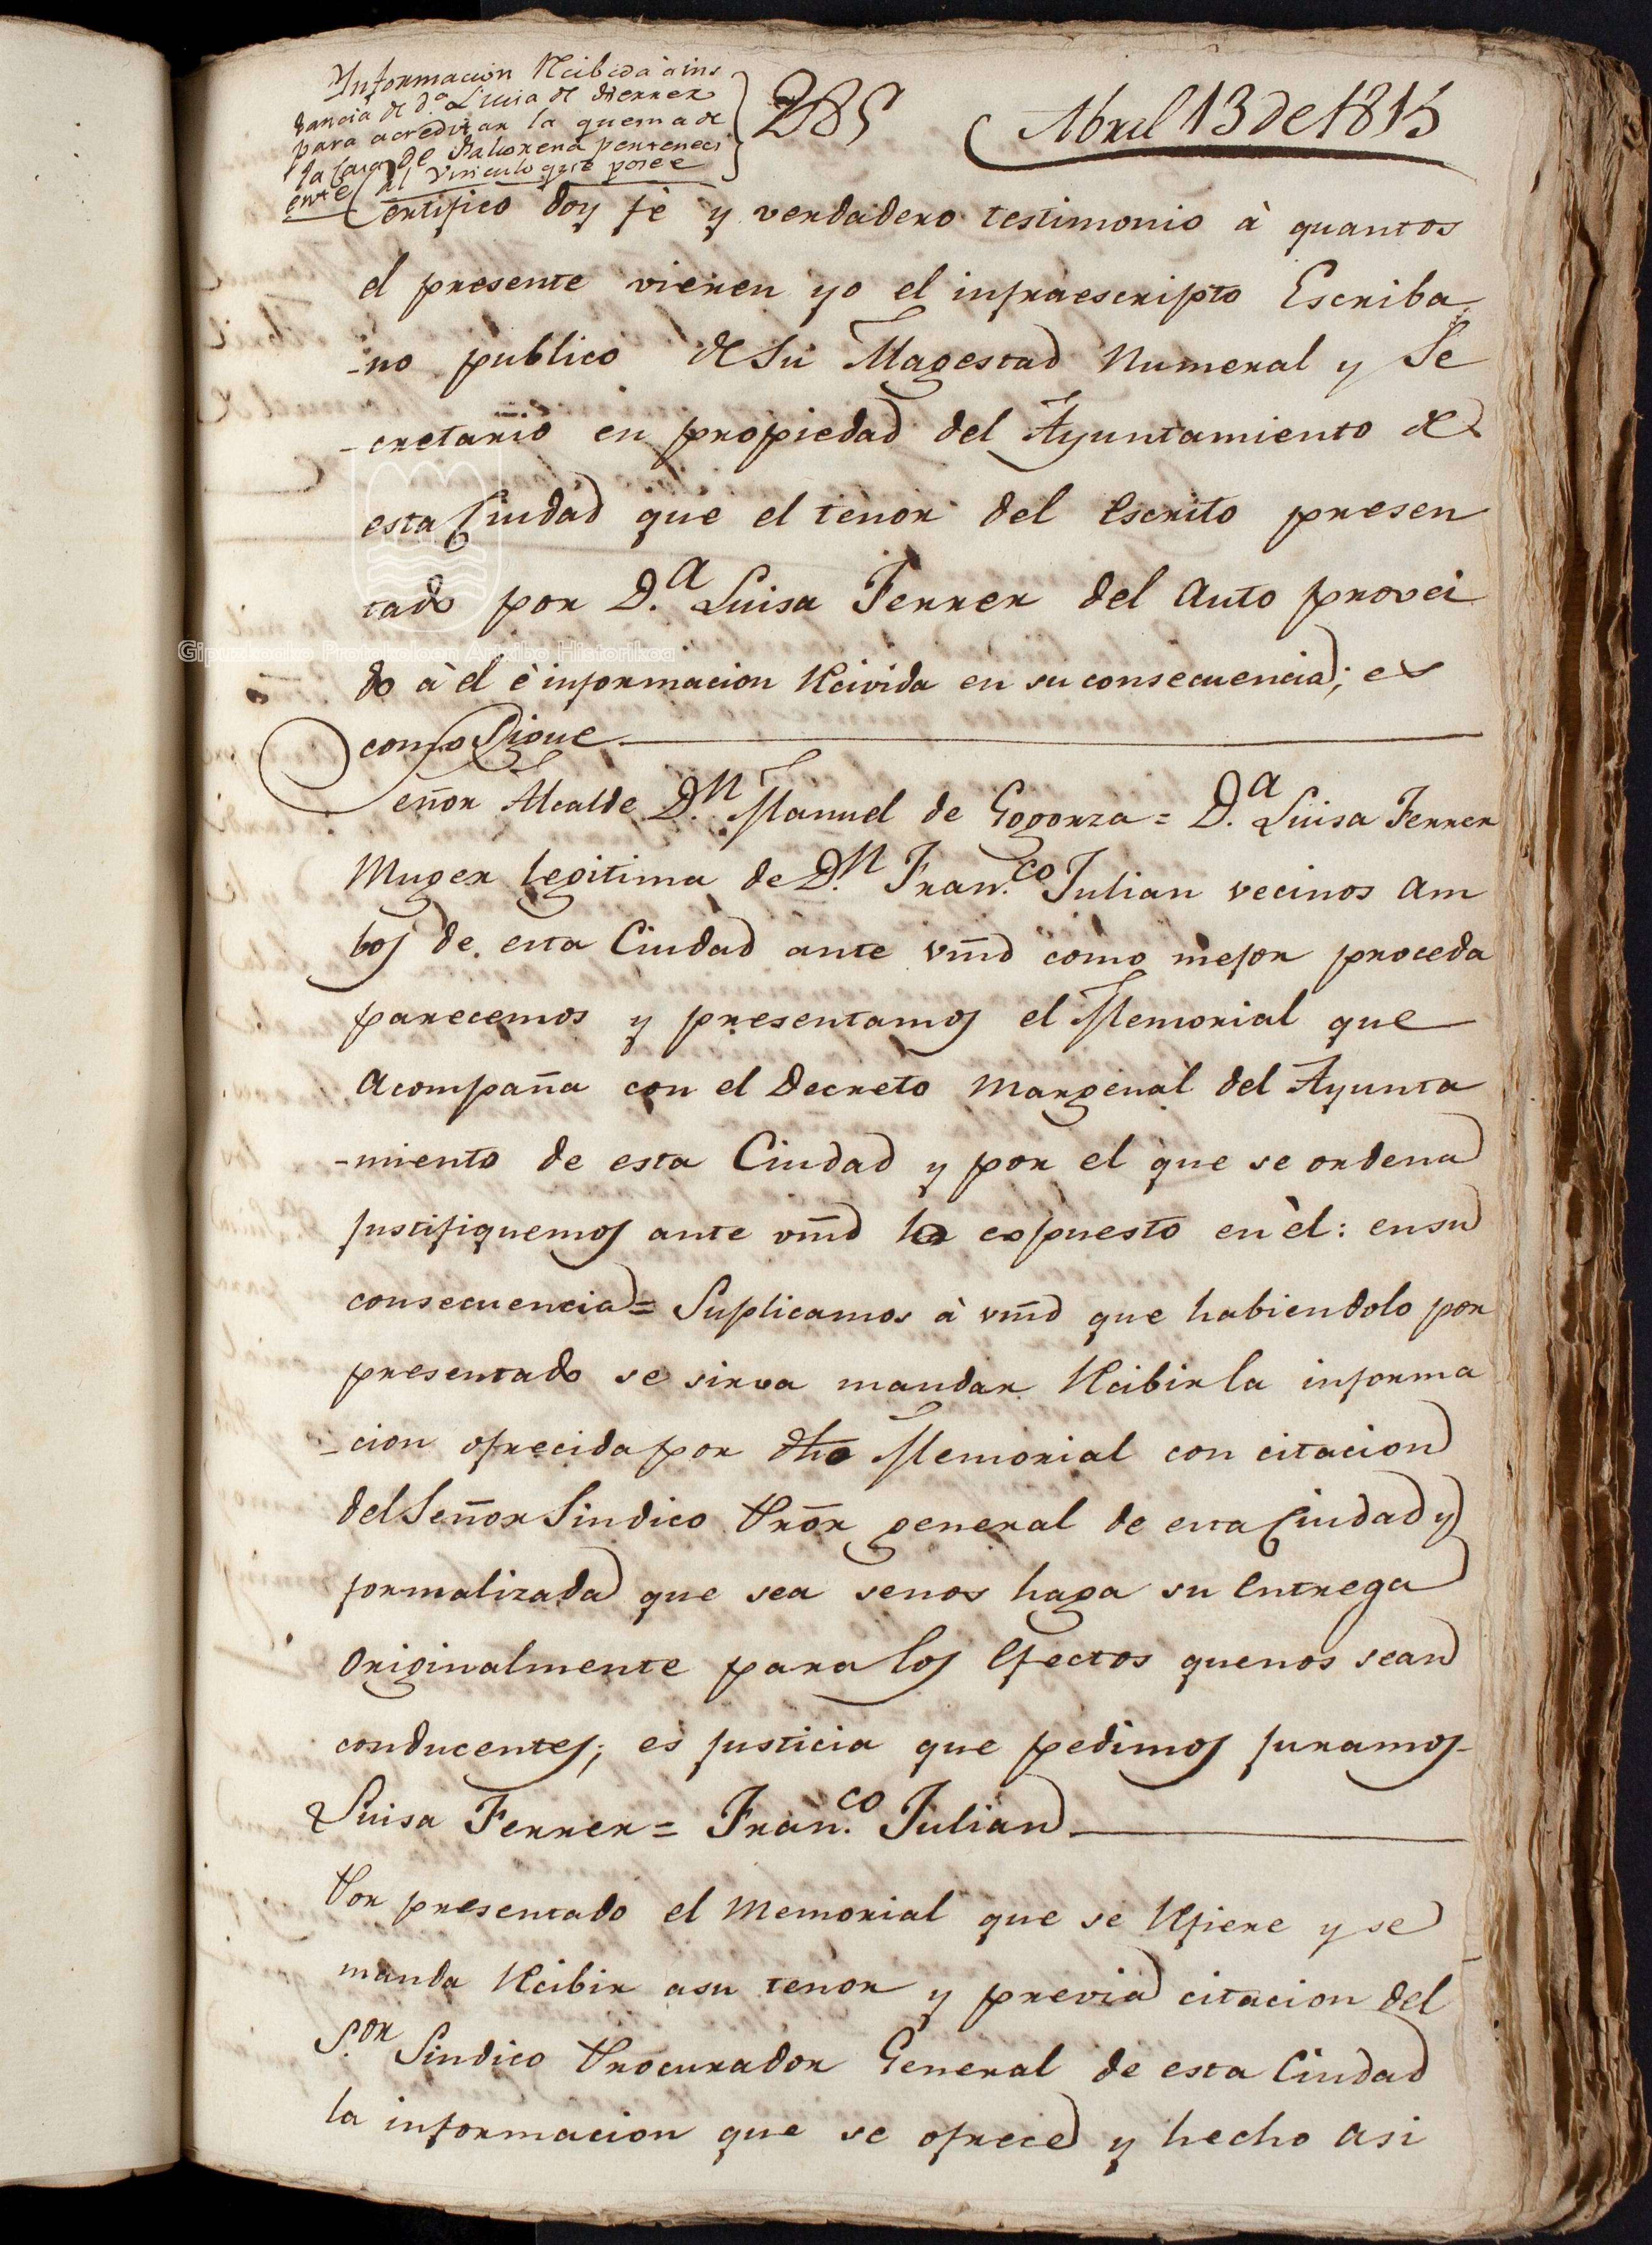 Informacion Recibida à ins
tancia de d.ª Luisa de Ferrer
para acreditar la quema de
la Casa de perteneci
ente al vinculo que posee
285
Abril 13 de 1815
Certifico doy fè y verdadero testimonio à quantos
el presente vieren yo el infraescripto Escriba
-no publico de Su Magestad Numeral y Se
-cretario en propiedad del Ayuntamiento de
esta Ciudad que el tenor del Escrito presen
tado por D.ª Luisa Ferrer del Auto provei
do à èl è informacion Recivida en su consecuencia; es
como Sigue
Señor Alcalde D.n Manuel de Gogorza = D.ª Luisa Ferrer
Muger legitima de D.n Fran.co Julian vecinos am
bos de esta Ciudad ante vmd como mejor proceda
parecemos y presentamos el Memorial que
acompaña con el Decreto Margenal del Ayunta
-miento de esta Ciudad y por el que se ordena
justifiquemos ante vmd lo expuesto en èl: en su
consecuencia = Suplicamos à vmd que habiendolo por
presentado se sirva mandar Recibir la informa
-cion ofrecida por dho Memorial con citacion
del Señor Sindico Prõr general de esta Ciudad y
formalizada que sea senos haga su Entrega
Originalmente para los Efectos quenos sean
conducentes; es justicia que pedimos juramos-
Luisa Ferrer = Fran.co Julian
Por presentado el Memorial que se Refiere y se
manda Recibir asu tenor y previa citacion del
S.or Sindico Procurador General de esta Ciudad
la informacion que se ofrece y hecho asi
Gipuzkoako Protokoloen Artxibo Historikoa